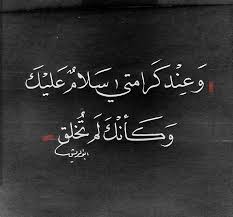 وَعِنْد كَرامَتي سَلامٌ عَلَيْكَ
وَكَأنْكَ لَم تُخلق